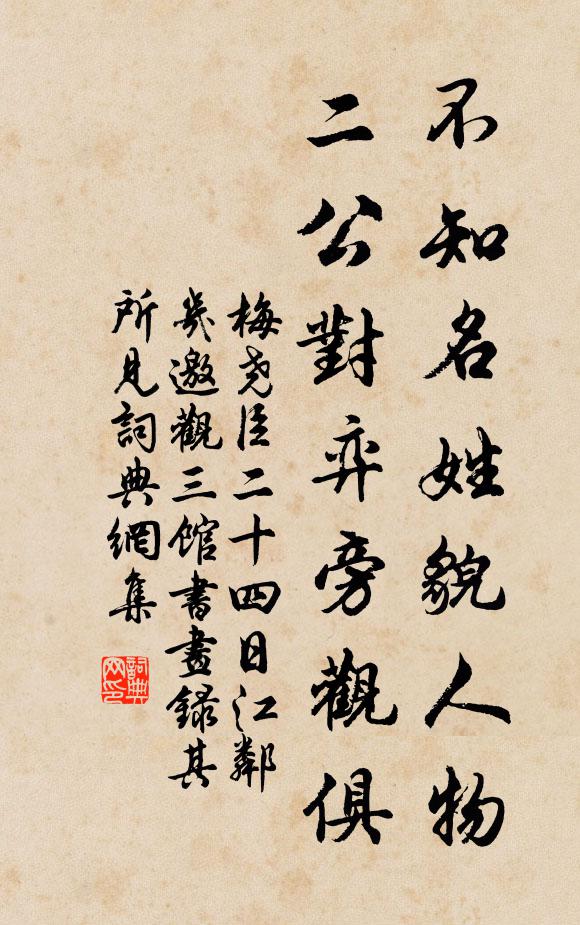 不知名姓貌人物
二公對弈旁觀俱
梅堯臣二十四日江鄰
幾邀觀三館書畫錄其
所見詞典網集
詞典网印